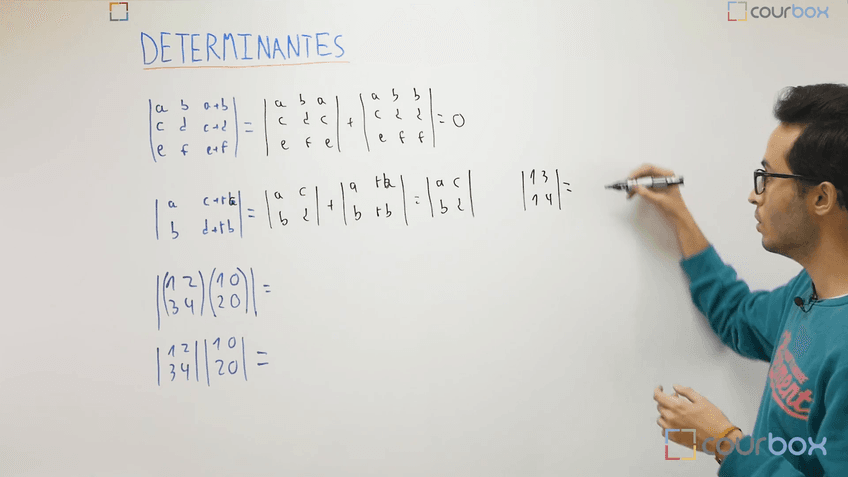 courbox
DETERMINANTES
|a b a+b; c d c+d; e f e+f| = |a b a; c d c; e f e| + |a b b; c d d; e f f| = 0
|a c+ra; b d+rb| = |a c; b d| + |a ra; b rb| = |a c; b d|
|1 3; 1 4| =
|(1 2; 3 4)(1 0; 2 0)| =
|1 2; 3 4| |1 0; 2 0| =
courbox